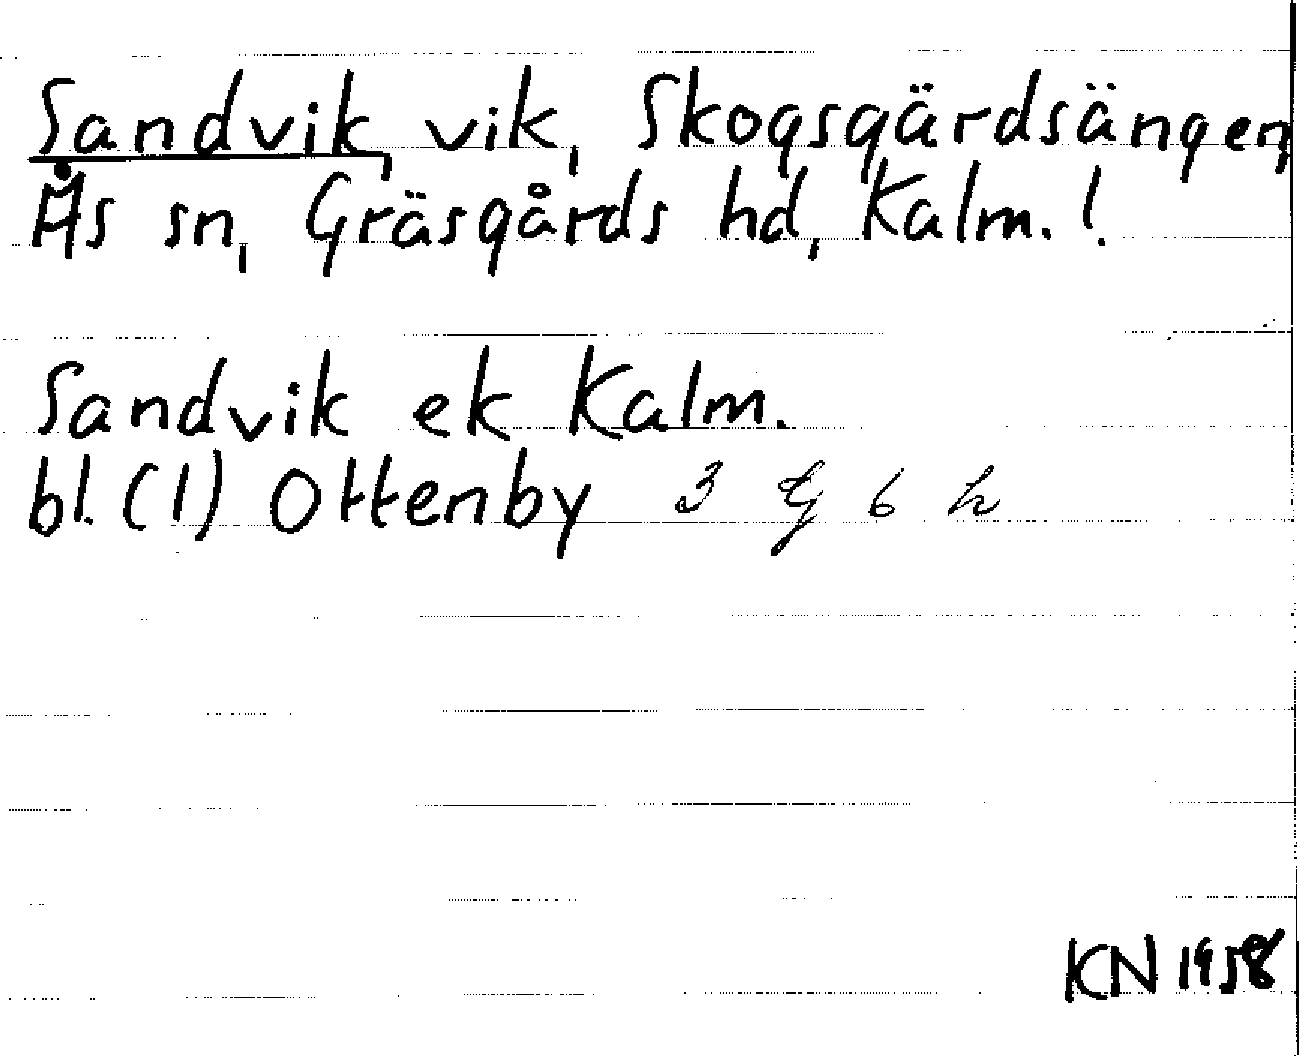 Sandvik, vik, Skogsgärdsängen,
Ås sn, Gräsgårds hd, Kalm. !
Sandvik ek Kalm.
bl. (1) Ottenby 3 G 6 h
KN 1958